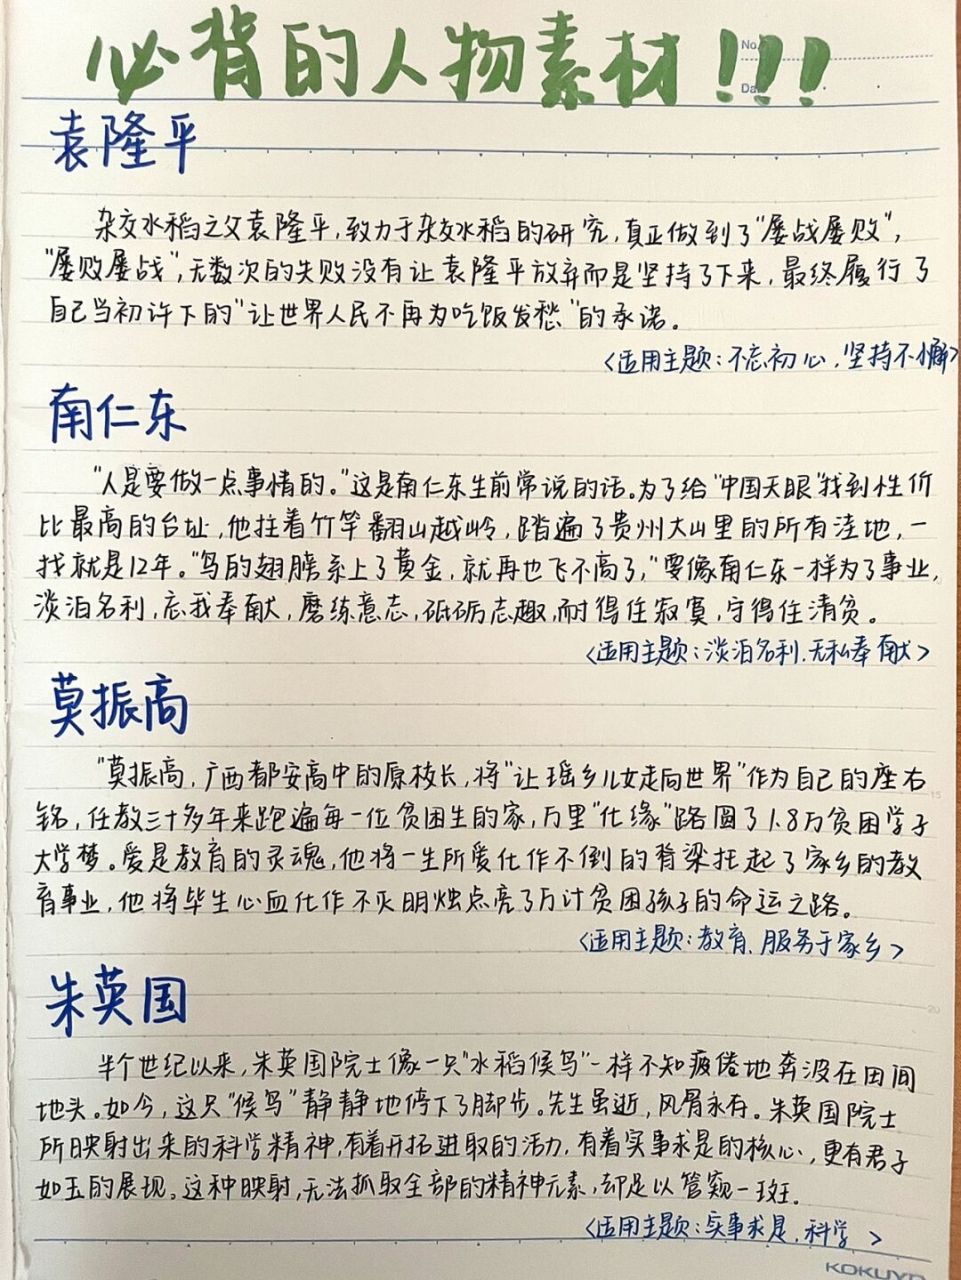 必背的人物素材!!!
No.
Da
袁隆平
杂交水稻之父袁隆平,致力于杂交水稻的研究,真正做到了"屡战屡败",
"屡败屡战",无数次的失败没有让袁隆平放弃而是坚持了下来,最终履行了
自己当初许下的"让世界人民不再为吃饭发愁"的承诺。
<适用主题:不忘初心,坚持不懈>
南仁东
"人是要做一点事情的。"这是南仁东生前常说的话。为了给"中国天眼"找到性价
比最高的台址,他拄着竹竿翻山越岭,踏遍了贵州大山里的所有洼地,一
找就是12年。"鸟的翅膀系上了黄金,就再也飞不高了,"要像南仁东一样为了事业,
淡泊名利,忘我奉献,磨练意志,砥砺志趣,耐得住寂寞,守得住清贫。
<适用主题:淡泊名利.无私奉献>
莫振高
"莫振高,广西都安高中的原校长,将"让瑶乡儿女走向世界"作为自己的座右
铭,任教三十多年来跑遍每一位贫困生的家,万里"化缘"路圆了1.8万贫困学子
大学梦。爱是教育的灵魂,他将一生所爱化作不倒的脊梁托起了家乡的教
育事业,他将毕生心血化作不灭明烛点亮了万计贫困孩子的命运之路。
<适用主题:教育、服务于家乡>
15
朱英国
20
半个世纪以来,朱英国院士像一只"水稻候鸟"一样不知疲倦地奔波在田间
地头。如今,这只"候鸟"静静地停下了脚步。先生虽逝,风骨永存。朱英国院士
所映射出来的科学精神,有着开拓进取的活力,有着实事求是的核心,更有君子
如玉的展现。这种映射,无法抓取全部的精神元素,却足以管窥一斑.
<适用主题:实事求是,科学>
KOKUYO